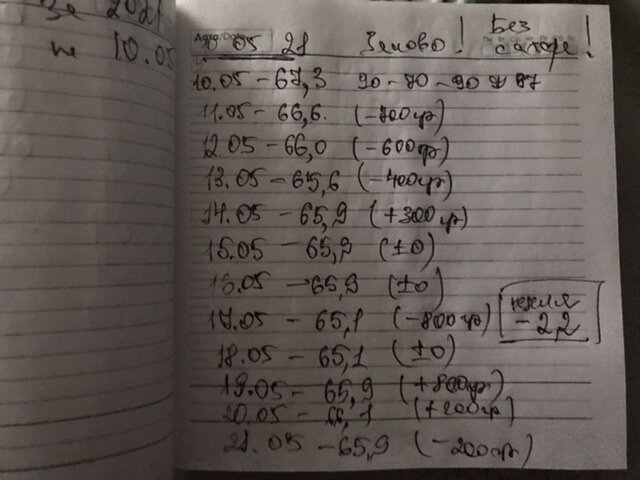 за 2021
не 10.05
10 05 21 Заново! Без сахара!
10.05 – 67,3 90 – 70 – 90
11.05 – 66,6. (–700гр)
12.05 – 66,0 (–600гр)
13.05 – 65,6 (–400гр)
14.05 – 65,9 (+300гр)
15.05 – 65,9 (±0)
16.05 – 65,9 (±0)
17.05 – 65,1 (–800гр)
неделя
– 2,2
18.05 – 65,1 (±0)
19.05 – 65,9 (+800гр)
20.05 – 66,1 (+200гр)
21.05 – 65,9 (–200гр)